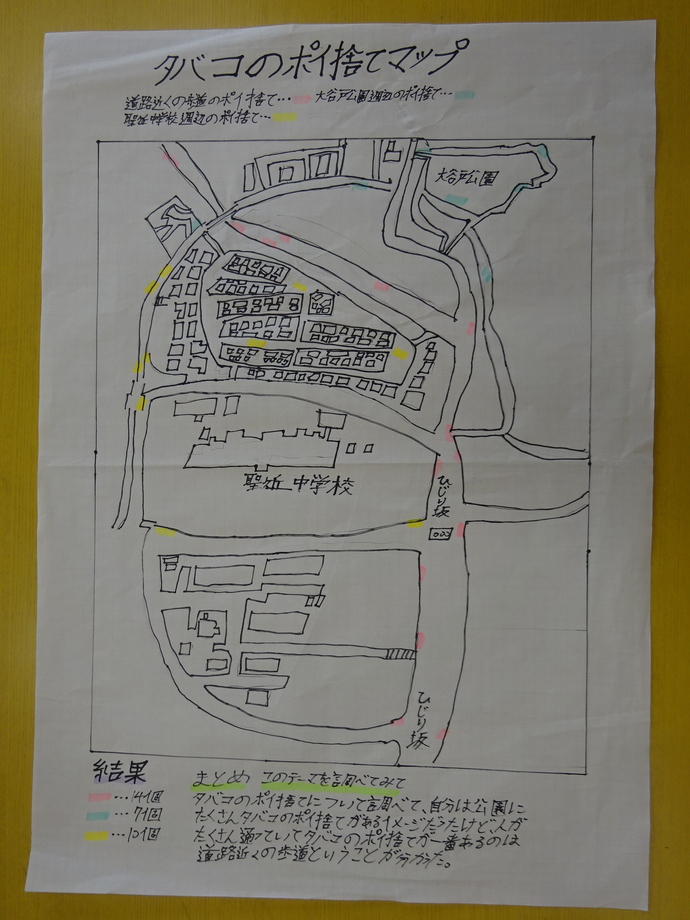 タバコのポイ捨てマップ
道路近くの歩道のポイ捨て… 大谷戸公園周辺のポイ捨て…
聖ヶ丘中学校周辺のポイ捨て…
大谷戸公園
聖ヶ丘中学校
ひじり坂
ひじり坂
結果
…14個
…7個
…10個
まとめ このテーマを調べてみて
タバコのポイ捨てについて調べて、自分は公園に
たくさんタバコのポイ捨てがあるイメージだったけど、人が
たくさん通っていてタバコのポイ捨てが一番あるのは
道路近くの歩道ということが分かった。